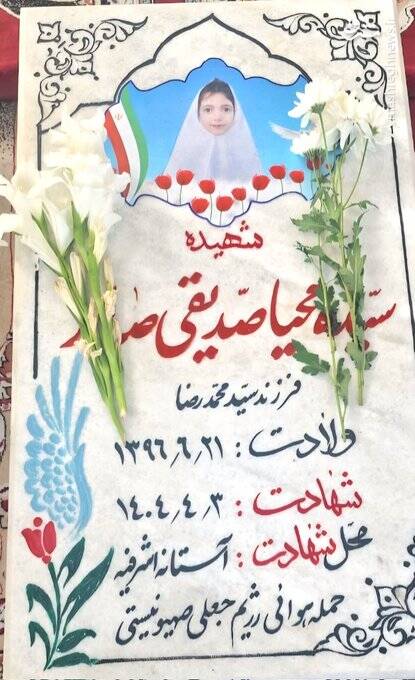 شهیده
سیّده محیا صدیقی صابر
فرزند سیّد محمدرضا
ولادت : ۱۳۹۶٫۶٫۲۱
شهادت : ۱۴۰۴٫۴٫۳
محل شهادت : آستانه اشرفیه
حمله هوائی رژیم جعلی صهیونیستی